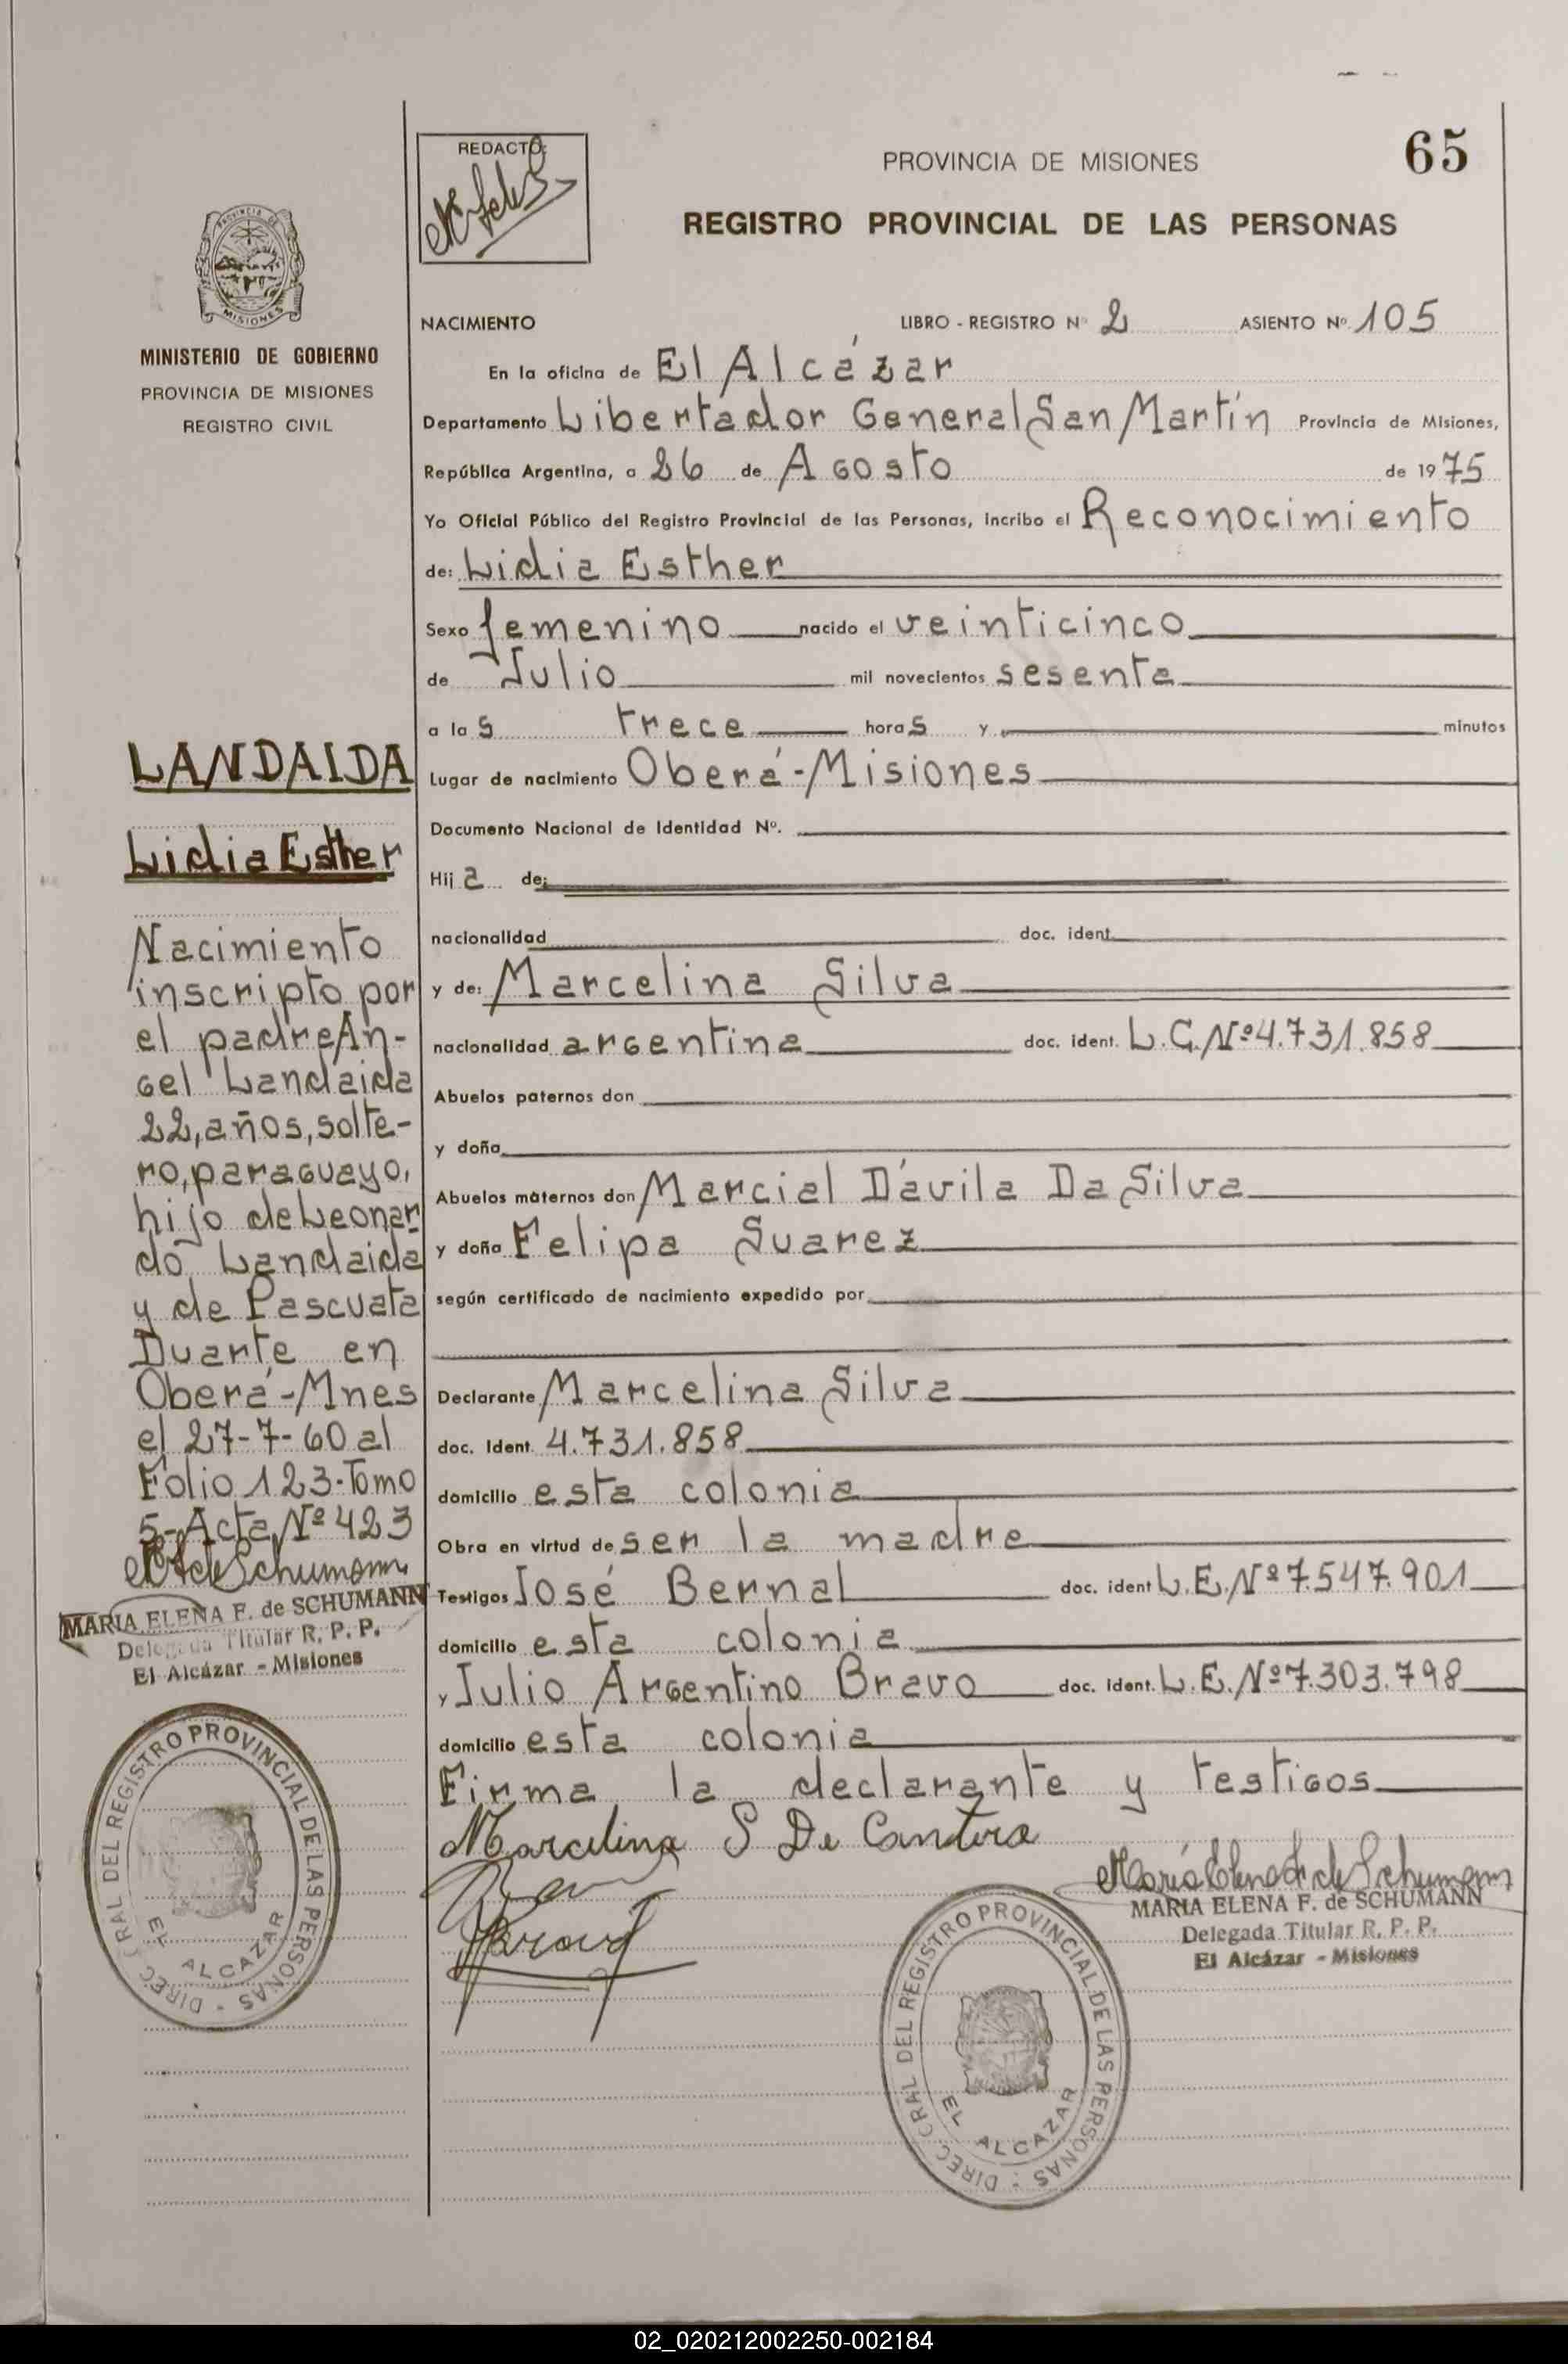 REDACTO:
PROVINCIA DE MISIONES
65
REGISTRO PROVINCIAL DE LAS PERSONAS
MISIONES
MINISTERIO DE GOBIERNO
PROVINCIA DE MISIONES
REGISTRO CIVIL
LANDAIDA
Lidia Esther
Nacimiento
inscripto por
el padre An-
gel Landaida
22, años, solte-
ro, paraguayo,
hijo de Leonar
do Landaida
y de Pascuala
Duarte en
Oberá-Mnes
el 27-7-60 al
Folio 123-Tomo
5-Acta Nº 423
MARIA ELENA F. de SCHUMANN
Delegada Titular R. P. P.
El Alcázar - Misiones
DIREC. GRAL DEL REGISTRO PROVINCIAL DE LAS PERSONAS -
EL ALCAZAR
NACIMIENTO LIBRO - REGISTRO Nº 2 ASIENTO Nº 105
En la oficina de El Alcázar
Departamento Libertador General San Martín Provincia de Misiones,
República Argentina, a 26 de Agosto de 1975
Yo Oficial Público del Registro Provincial de las Personas, incribo el Reconocimiento
de: Lidia Esther
Sexo femenino nacido el veinticinco
de Julio mil novecientos sesenta
a las trece horas y minutos
Lugar de nacimiento Oberá-Misiones
Documento Nacional de Identidad Nº.
Hija de:
nacionalidad doc. ident.
y de: Marcelina Silva
nacionalidad argentina doc. ident. L.C. Nº 4.731.858
Abuelos paternos don
y doña
Abuelos maternos don Marcial Dávila Da Silva
y doña Felipa Suarez
según certificado de nacimiento expedido por
Declarante Marcelina Silva
doc. Ident. 4.731.858
domicilio esta colonia
Obra en virtud de ser la madre
Testigos José Bernal doc. ident L.E. Nº 7.547.901
domicilio esta colonia
y Julio Argentino Bravo doc. Ident. L.E. Nº 7.303.798
domicilio esta colonia
Firma la declarante y testigos
Marcelina S De Cantero
María Elena F. de Schumann
MARIA ELENA F. de SCHUMANN
Delegada Titular R. P. P.
El Alcázar - Misiones
DIREC. GRAL DEL REGISTRO PROVINCIAL DE LAS PERSONAS -
EL ALCAZAR
02_020212002250-002184